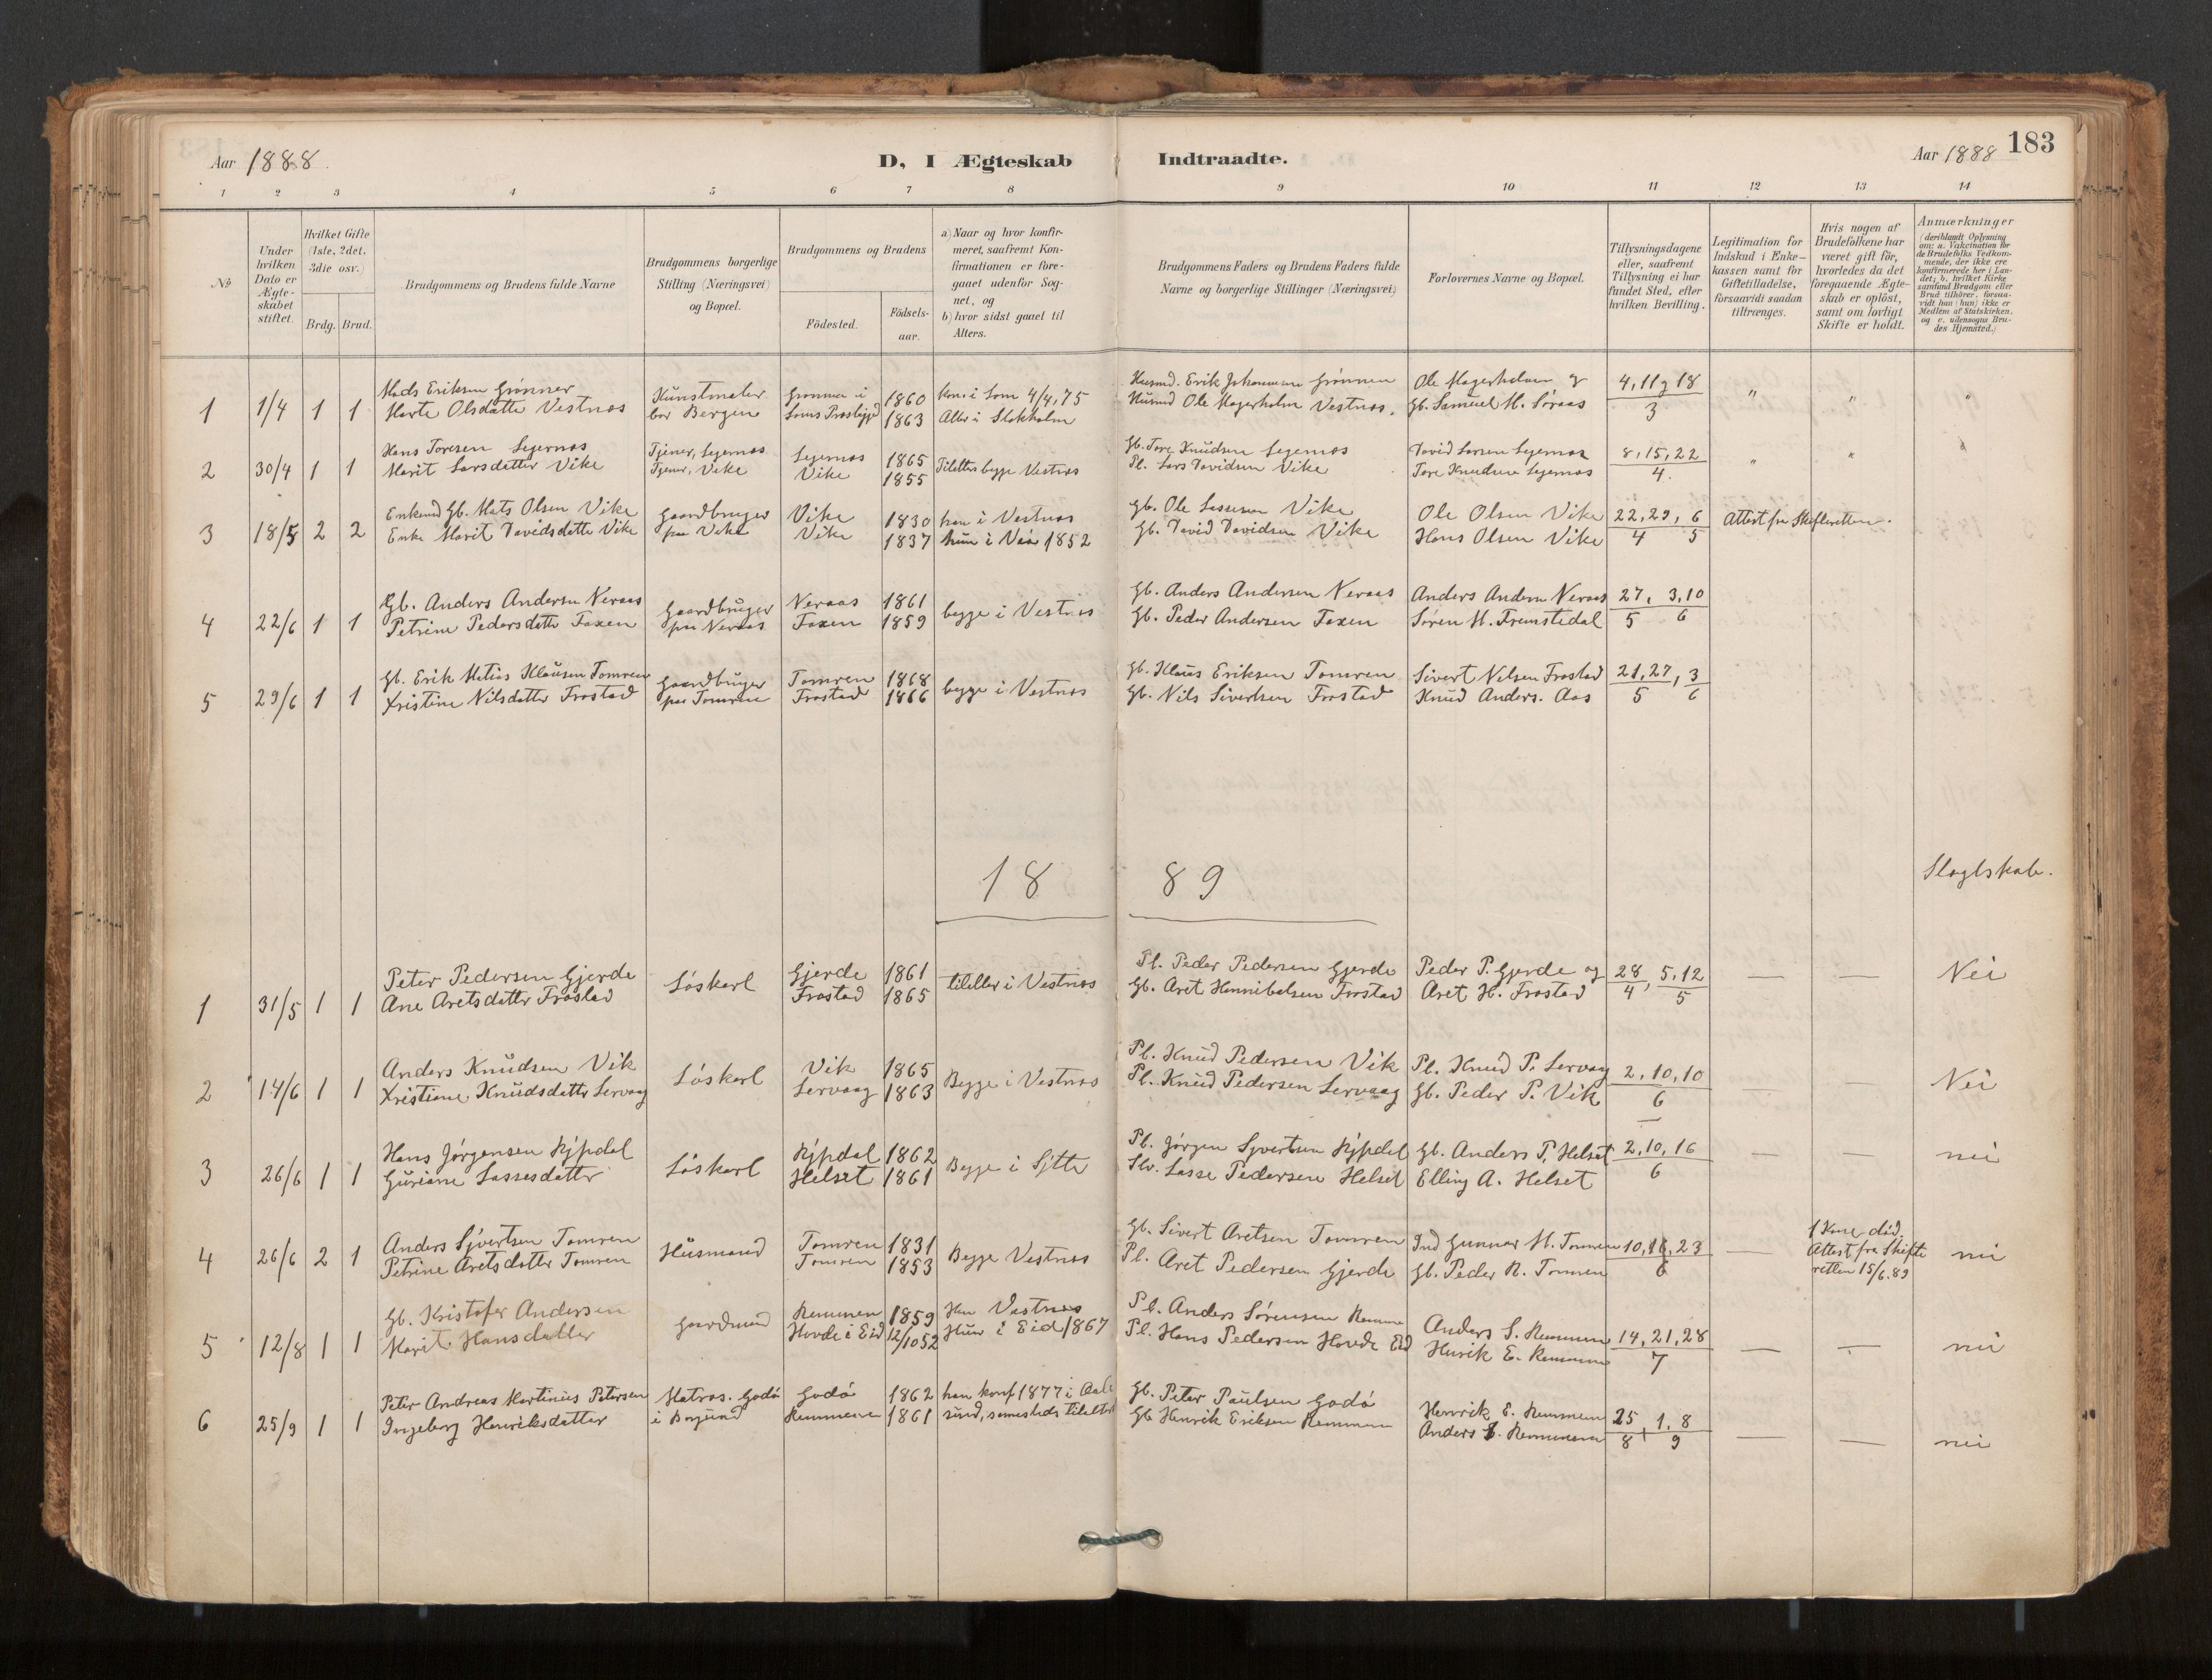 Aar 1888.
D, I Ægteskab Indtraadte.
Aar 1888 183
1 2 3 4 5 6 7 8 9 10 11 12 13 14
№
Under hvilken Dato er Ægteskabet stiftet.
Hvilket Gifte (1ste, 2det, 3die osv.)
Brdg. Brud.
Brudgommens og Brudens fulde Navne
Brudgommens borgerlige Stilling (Næringsvei) og Bopæl.
Brudgommens og Brudens
Födested.
Födsels-aar.
a) Naar og hvor konfirmeret, saafremt Konfirmationen er foregaaet udenfor Sognet, og
b) hvor sidst gaaet til Alters.
Brudgommens Faders og Brudens Faders fulde Navne og borgerlige Stillinger (Næringsvei)
Forlovernes Navne og Bopæl.
Tillysningsdagene eller, saafremt Tillysning ei har fundet Sted, efter hvilken Bevilling.
Legitimation for Indskud i Enkekassen samt for Giftetilladelse, forsaavidt saadan tiltrænges.
Hvis nogen af Brudefolkene har været gift för, hvorledes da det foregaaende Ægteskab er oplöst, samt om lovligt Skifte er holdt.
Anmærkninger
(deriblandt Oplysning om: a. Vakcination för de Brudefolks Vedkommende, der ikke ere konfirmerede her i Landet; b. hvilket Kirkesamfund Brudgom eller Brud tilhörer, forsaavidt han (hun) ikke er Medlem af Statskirken, og c. udensogns Brudes Hjemsted.)
1 1/4 1 1 Mads Eriksen Grönner Kunstmaler Grønner i 1860 Kon. i Som 4/4, 75 Husmd. Erik Johannesen Grönnen Ole Magerholm og 4, 11 og 18 " " "
Marte Olsdatter Vestnæs bor Bergen 1863 Alter i Stokholm Husmd Ole Magerholm Vestnæs. Gb. Samuel M. Söraas 3
2 30/4 1 1 Hans Toresen Sejernæs Tjener, Sejernæs Sejernæs 1865 Tilalters begge Vestnæs Gb. Tore Knudsen Sejernæs David Larsen Sejernæs 8, 15, 22 " "
Marit Larsdatter Vike Tjener, Vike Vike 1855 Pl. Lars Davidsen Vike Tore Knudsen Sejernæs 4.
3 18/5 2 2 Enkemd Gb. Mats Olsen Vike Gaardbruger Vike 1830 han i Vestnæs Gb. Ole Lassesen Vike Ole Olsen Vike 22, 29, 6 Attest fra Skifteretten.
Enke Marit Davidsdatter Vike paa Vike Vike 1837 hun i 1852 Gb. David Davidsen Vike Hans Olsen Vike 4 5
4 22/6 1 1 Gb. Anders Andersen Neraas Gaardbruger Neraas 1861 begge i Vestnæs Gb. Anders Andersen Neraas Anders Andersen Neraas 27, 3, 10
Petrine Pedersdatter Faxen paa Neraas Faxen 1859 Gb. Peder Andersen Faxen Sören M. Fremstedal 5 6
5 29/6 1 1 Gb. Erik Matias Klausen Tomren Gaardbruger Tomren 1868 begge i Vestnæs Gb. Klaus Eriksen Tomren Sivert Nilsen Frostad 21, 27, 3
Kristine Nilsdatter Frostad paa Tomren Frostad 1866 Gb. Nils Sivertsen Frostad Knud Anders. Aas 5 6
18 89
Slægtskab.
1 31/5 1 1 Peter Pedersen Gjerde Löskarl Gjerde 1861 tilalter i Vestnæs Pl. Peder Pedersen Gjerde Peder P. Gjerde og 28, 5, 12 — — Nei
Ane Aretsdatter Frostad Frostad 1865 Gb. Aret Hannibalsen Frostad Aret H. Frostad 4 5
2 14/6 1 1 Anders Knudsen Vik Löskarl Vik 1865 Begge i Vestnæs Pl. Knud Pedersen Vik Pl. Knud P. Servaag 2, 10, 10 — — Nei
Kristiane Knudsdatter Servaag Servaag 1863 Pl. Knud Pedersen Servaag Gb. Peder P. Vik 6
3 26/6 1 1 Hans Jörgensen Kjpdal Löskarl Kjpdal 1862 Begge i Pl. Jörgen Sjvertsen Kjpdal Gb. Anders P. Helset 2, 10, 16 — — nei
Guriane Lassesdatter Helset 1861 Lasse Pedersen Helset Elling A. Helset 6
4 26/6 2 1 Anders Sjvertsen Tomren Husmand Tomren 1831 Begge Vestnæs Gb. Sivert Aretsen Tomren Gunnar M. Tomren 10, 16, 23 — 1 Kone död. Attest fra Skifteretten 15/6. 89 nei
Petrine Aretsdatter Tomren Tomren 1853 Pl. Aret Pedersen Gjerde Gb. Peder R. Tomren 6
5 12/8 1 1 Gb. Kristofer Andersen Gaardmand Remmen 1859 Han Vestnæs Pl. Anders Sörensen Remmem Anders S. Remmem 14, 21, 28 — — nei
Marit Hansdatter Hovde i Eid 12/10 52 Hun i Eid 1867 Pl. Hans Pedersen Hovde Eid Henrik E. Remmem 7
6 25/9 1 1 Peter Andreas Martinus Petersen Matros. Godö Godö 1862 han konf 1877 i Aale Gb. Peter Paulsen Godö Henrik E. Remmem 25, 1, 8 — — nei
Ingeborg Henriksdatter i Borgund Remmem 1861 sund, samesteds tilalters Gb Henrik Eriksen Remmem Anders S. Remmem 8 9